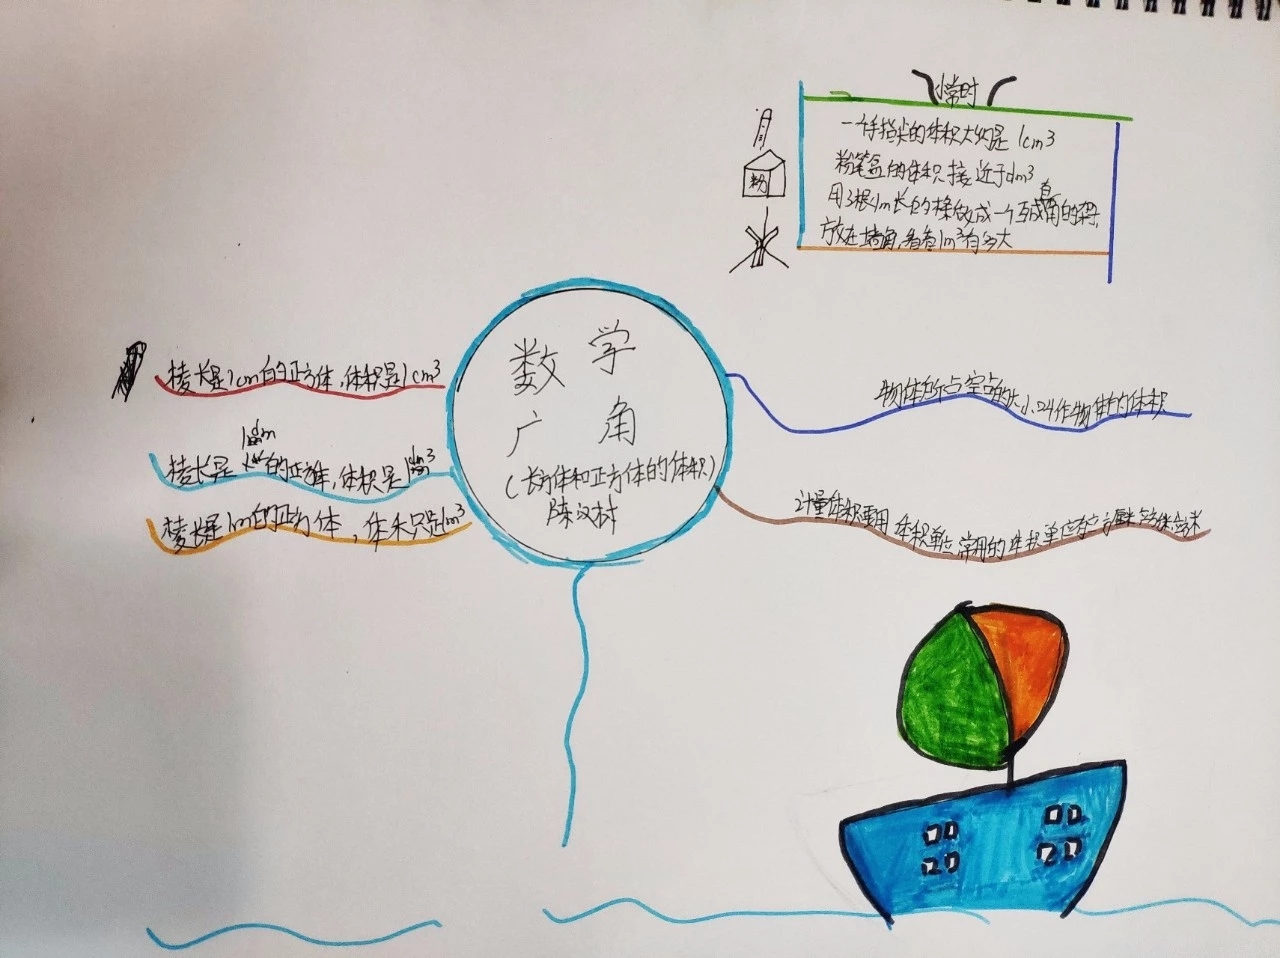 小常时
一个手指尖的体积大约是1cm³
粉笔盒的体积接近于dm³
用3根1m长的木条做成一个互成直角的架,
放在墙角,看看1m³有多大
粉
数学
广角
(长方体和正方体的体积)
棱长是1cm的正方体,体积是1cm³
棱长是1dm的正方体,体积是1dm³
棱长是1m的正方体,体积是1m³
物体所占空间的大小叫作物体的体积
计量体积要用体积单位,常用的体积单位有立方厘米